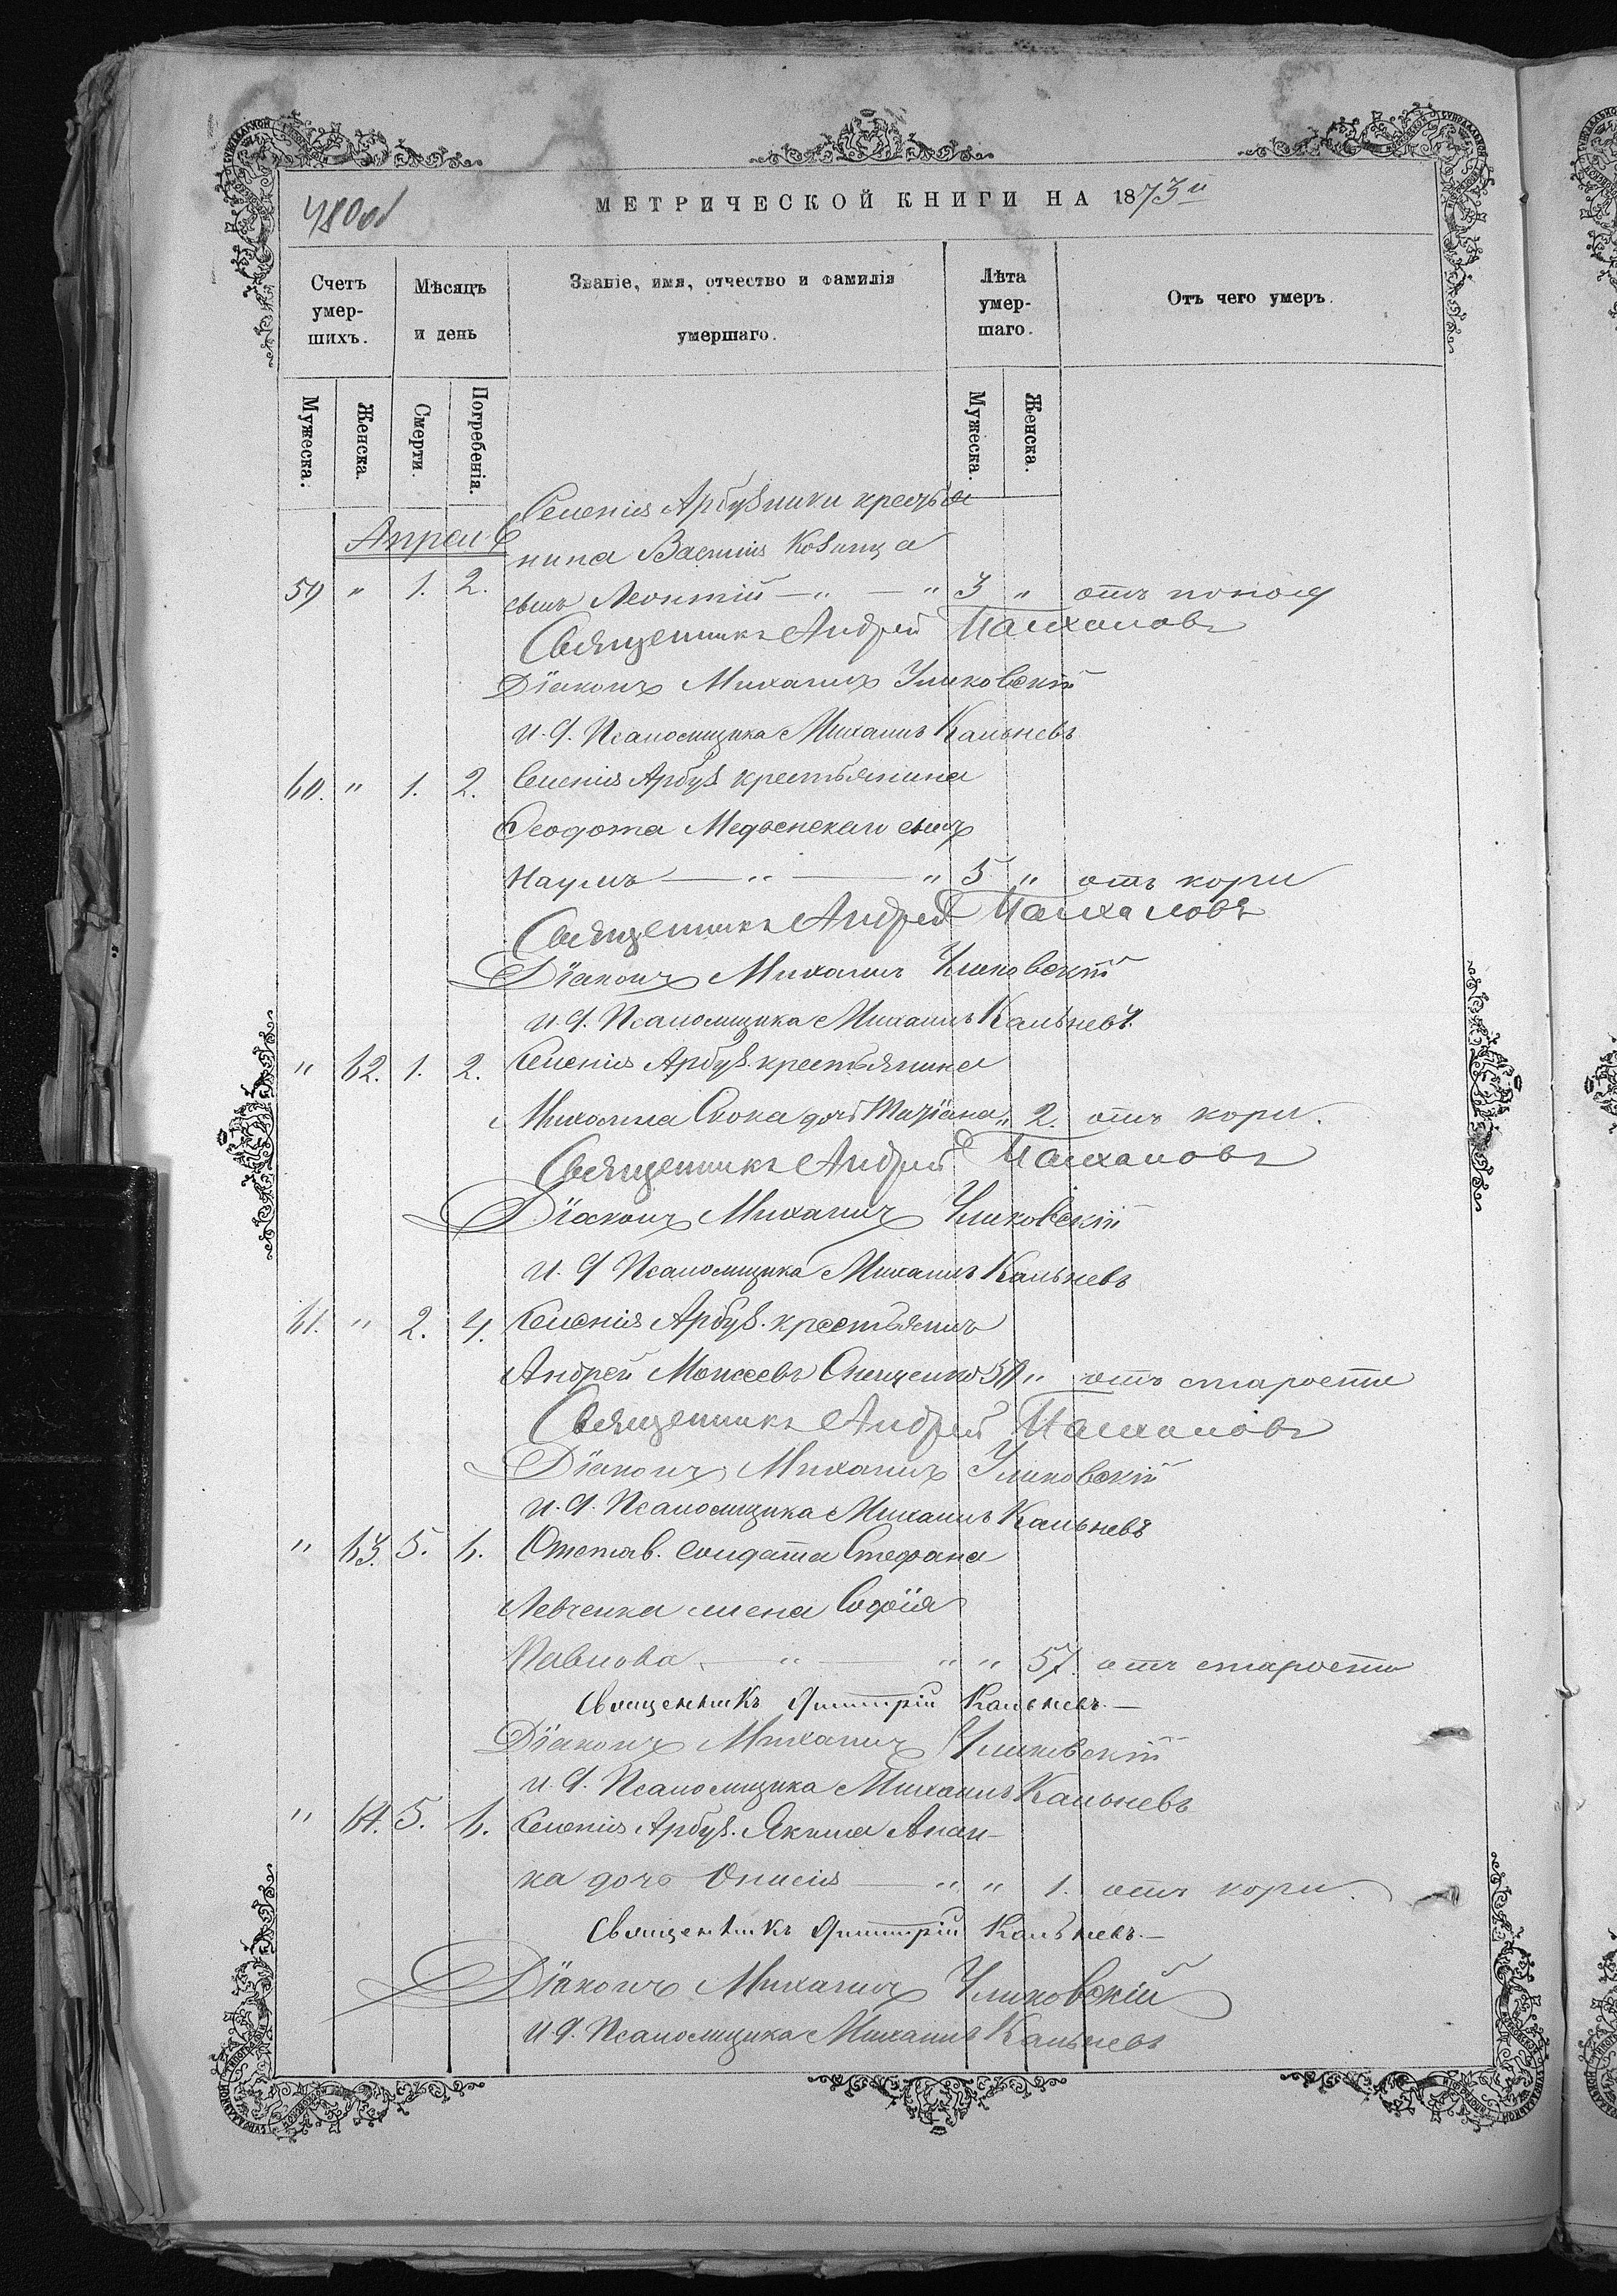 480об
МЕТРИЧЕСКОЙ КНИГИ НА 1873й
Счетъ умершихъ.
Мѣсяцъ и день
Званіе, имя, отчество и фамилія умершаго.
Лѣта умершаго.
Отъ чего умеръ.
Мужеска. Женска. Смерти. Погребенія. Мужеска. Женска.
Апрель
Селенія Арбузинки крестья
нина Василія
59 " 1. 2. сынъ Леонтій — " — " 3 " отъ
Священникъ Андрей
Діаконъ Михаилъ
И. д. Псаломщика Михаилъ Кальневъ
60. " 1. 2. Селенія Арбуз крестьянина
Ѳеодота сынъ
Наумъ — " — " 5 " отъ кори
Священникъ Андрей
Діаконъ Михаилъ
И. д. Псаломщика Михаилъ Кальневъ.
" 62. 1. 2. Селенія Арбуз. крестьянина
Михаила дочь Татіана " 2. отъ кори.
Священникъ Андрей
Діаконъ Михаилъ
И. д Псаломщика Михаилъ Кальневъ
61. " 2. 4. Селенія Арбуз. крестьянинъ
Андрей Моисеевъ " отъ старости
Священникъ Андрей
Діаконъ Михаилъ
И. д. Псаломщика Михаилъ Кальневъ
" 63. 5. 6. Отстав. солдата Стефана
Левченка жена Софія
Павлова — " — " " 57. отъ старости
Священникъ Димитрій Кальневъ. —
Діаконъ Михаилъ
И. д. Псаломщика Михаилъ Кальневъ
" 64. 5. 6. Селенія Арбуз. Якима
ка дочь — " " 1. отъ кори.
Священникъ Димитрій Кальневъ. —
Діаконъ Михаилъ
И д. Псаломщика Михаилъ Кальневъ